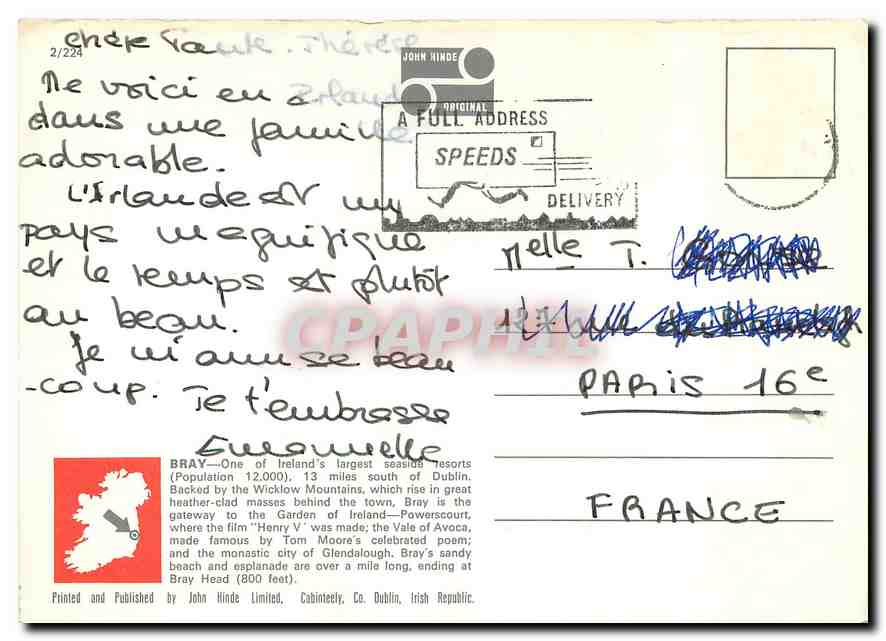 2/224
Chère Tante Thérèse
Me voici en Irlande
dans une famille
adorable.
L'Irlande est un
pays magnifique
et le temps est plutôt
au beau.
Je m'amuse beau
-coup. Je t'embrasse
Emmanuelle
JOHN HINDE
ORIGINAL
A FULL ADDRESS
SPEEDS
DELIVERY
Melle T.
127 rue
PARIS 16e
FRANCE
CPAPHIL
BRAY—One of Ireland's largest seaside resorts
(Population 12,000), 13 miles south of Dublin.
Backed by the Wicklow Mountains, which rise in great
heather-clad masses behind the town, Bray is the
gateway to the Garden of Ireland—Powerscourt,
where the film "Henry V' was made; the Vale of Avoca,
made famous by Tom Moore's celebrated poem;
and the monastic city of Glendalough. Bray's sandy
beach and esplanade are over a mile long, ending at
Bray Head (800 feet).
Printed and Published by John Hinde Limited, Cabinteely, Co. Dublin, Irish Republic.